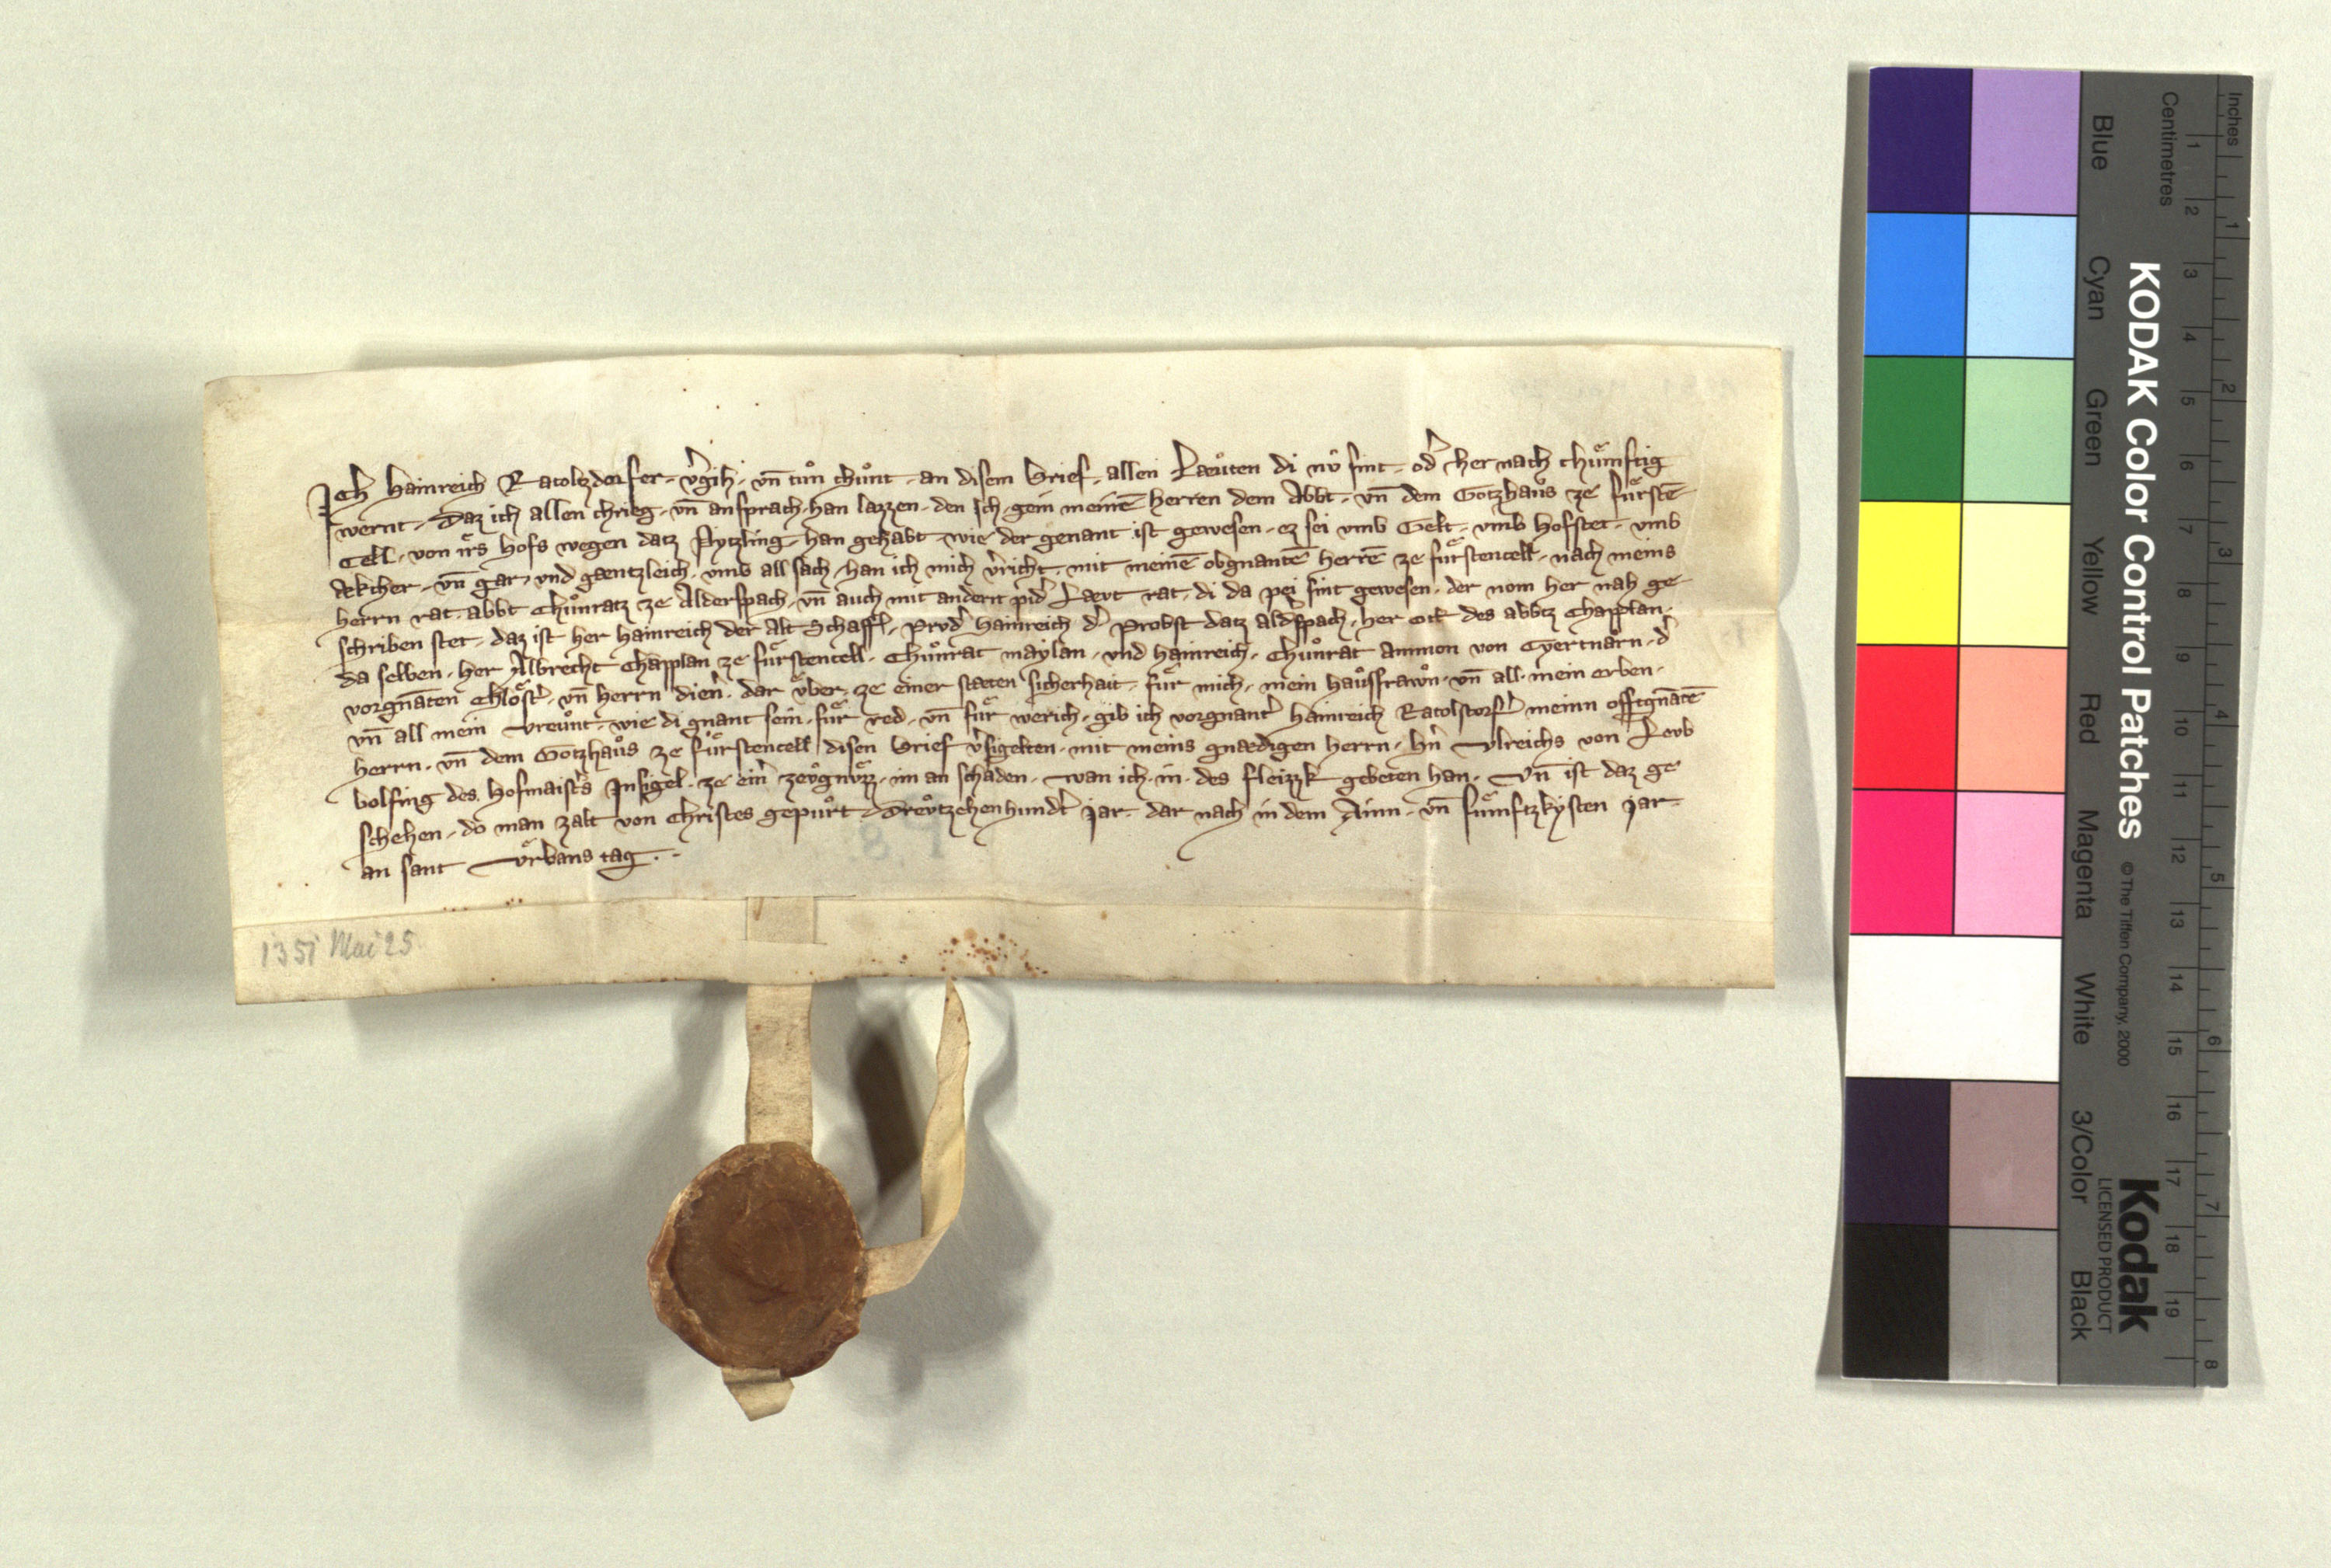 Ich Hainreich Ratoltzdorfer · v̾gih · vn̄ tuͦn chuͦnt · an disem brief · allen Laeuͦten di nv̂ sint · od̾ her nach chuͤmftig
wernt · Daz ich allen chrieg · vn̄ ansprach · han lazzen · den ich · gein meinē herren dem Abbt · vn̄ dem Gotzhauͦs ze fuͤrstē
Cell · von irs hofs wegen datz Nytzling · han gehabt · wie der genant ist gewesen · ez sei vmb Gelt · vmb hofstet · vmb
Aekcher · vn̄ gar · vnd gaentzleich · vmb all sach · han ich mich v̾richt · mit meinē obgnantē herrē ze fuͤrstencell · nach meins
herrn rat · abbt Chuͦnratz ze Alderspach · vn̄ auch mit andern pid̾ Laevt rat · di da pei sint gewesen · der nom her nah ge
schriben stet · daz ist her hainreich der alt Schaffl̾ · prvd̾ hainreich d̾ Probst datz ald̾spach · her Ott des abbtz Chapplan ·
da selben · her Albrecht Chapplan ze fuͤrstencell · Chuͦnrat maylan · vnd hainreich · Chuͦnrat ammon von Cyertnarn · d̾
vorgnāten Chloͤst̾ · vn̄ herrn dien̾ · dar vͤber · ze einer staeten sicherhait · fuͤr mich · mein hauͦsfrawn · vn̄ all · mein erben ·
vn̄ all mein vreuͦnt · wie di gnant sein · fuͤr red · vn̄ fuͤr werich · gib ich vorgnant̾ hainreich Ratolstorf̾ meinn offtgnātē
herrn · vn̄ dem Gotzhauͦs ze fuͤrstencell disen brief v̾sigelten · mit meins gnaedigen herrn · hn̾ vlreichs von Levb
bolfing des hofmaist̾s Insigel · ze ein̾ zevͦgnvͤzz · im an schaden · wan ich · in · des fleizzk gebeten han · Vn̄ ist daz ge
schehen · do man zalt von Christes gepuͦrt Drevͦtzehenhundt̾ jar · dar nach in dem Ainn · vn̄ fuͤmftzkysten jar ·
an sant vͦrbans tag ·
1351 Mai 25
KODAK Color Control Patches
© The Tiffen Company, 2000
Kodak
LICENSED PRODUCT
Inches
1 2 3 4 5 6 7 8
Centimetres
1 2 3 4 5 6 7 8 9 10 11 12 13 14 15 16 17 18 19
Blue
Cyan
Green
Yellow
Red
Magenta
White
3/Color
Black